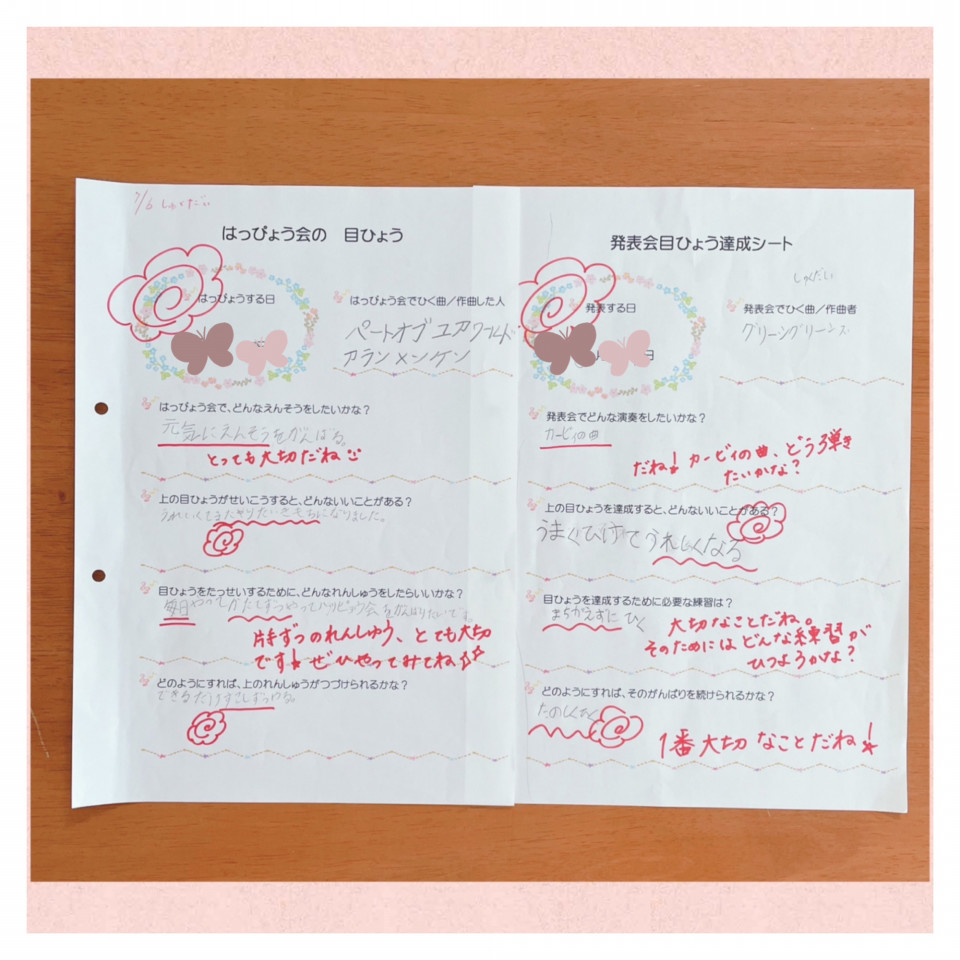 7/6 しゅくだい
はっぴょう会の 目ひょう
はっぴょうする日
はっぴょう会でひく曲/作曲した人
パートオブユアワールド
アランメンケン
はっぴょう会で、どんなえんそうをしたいかな?
元気にえんそうをがんばる。
とっても大切だね
上の目ひょうがせいこうすると、どんないいことがある?
うれしくてまたやりたいきもちになりました。
目ひょうをたっせいするために、どんなれんしゅうをしたらいいかな?
毎日やってかたてずつやってハッピョウ会を
片手ずつのれんしゅう、とても大切
です!ぜひやってみてね☆
どのようにすれば、上のれんしゅうがつづけられるかな?
できるだけすこしずつやる。
発表会目ひょう達成シート
しゅくだい
発表する日
日
発表会でひく曲/作曲者
グリーングリーンズ
発表会でどんな演奏をしたいかな?
カービィの曲
だね!カービィの曲、どう弾き
たいかな?
上の目ひょうを達成すると、どんないいことがある?
うまくひけてうれしくなる
目ひょうを達成するために必要な練習は?
まちがえずにひく
大切なことだね。
そのためにはどんな練習が
ひつようかな?
どのようにすれば、そのがんばりを続けられるかな?
たのしくひく
1番大切なことだね!